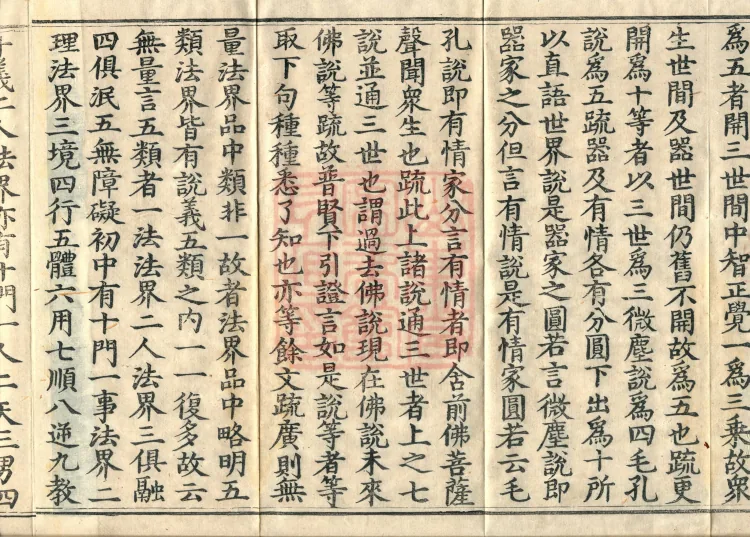 爲五者開三世間中智正覺一爲三乘故衆
生世間及器世間仍舊不開故爲五也䟽更
開爲十等者以三世爲三微塵說爲四毛孔
說爲五䟽器及有情各有分圓下出爲十所
以直語世界說是器家之圓若言微塵說即
器家之分但言有情說是有情家圓若云毛
孔說即有情家分言有情者即含前佛菩薩
聲聞衆生也䟽此上諸說通三世者上之七
說並通三世也謂過去佛說現在佛說未來
佛說等䟽故普賢下引證言如是說等者等
取下句種種悉了知也亦等餘文䟽廣則無
量法界品中類非一故者法界品中略明五
類法界皆有說義五類之內一一復多故云
無量言五類者一法法界二人法界三俱融
四俱泯五無障礙初中有十門一事法界二
理法界三境四行五體六用七順八逆九教
十義二人法界亦有十門一人二天三男四